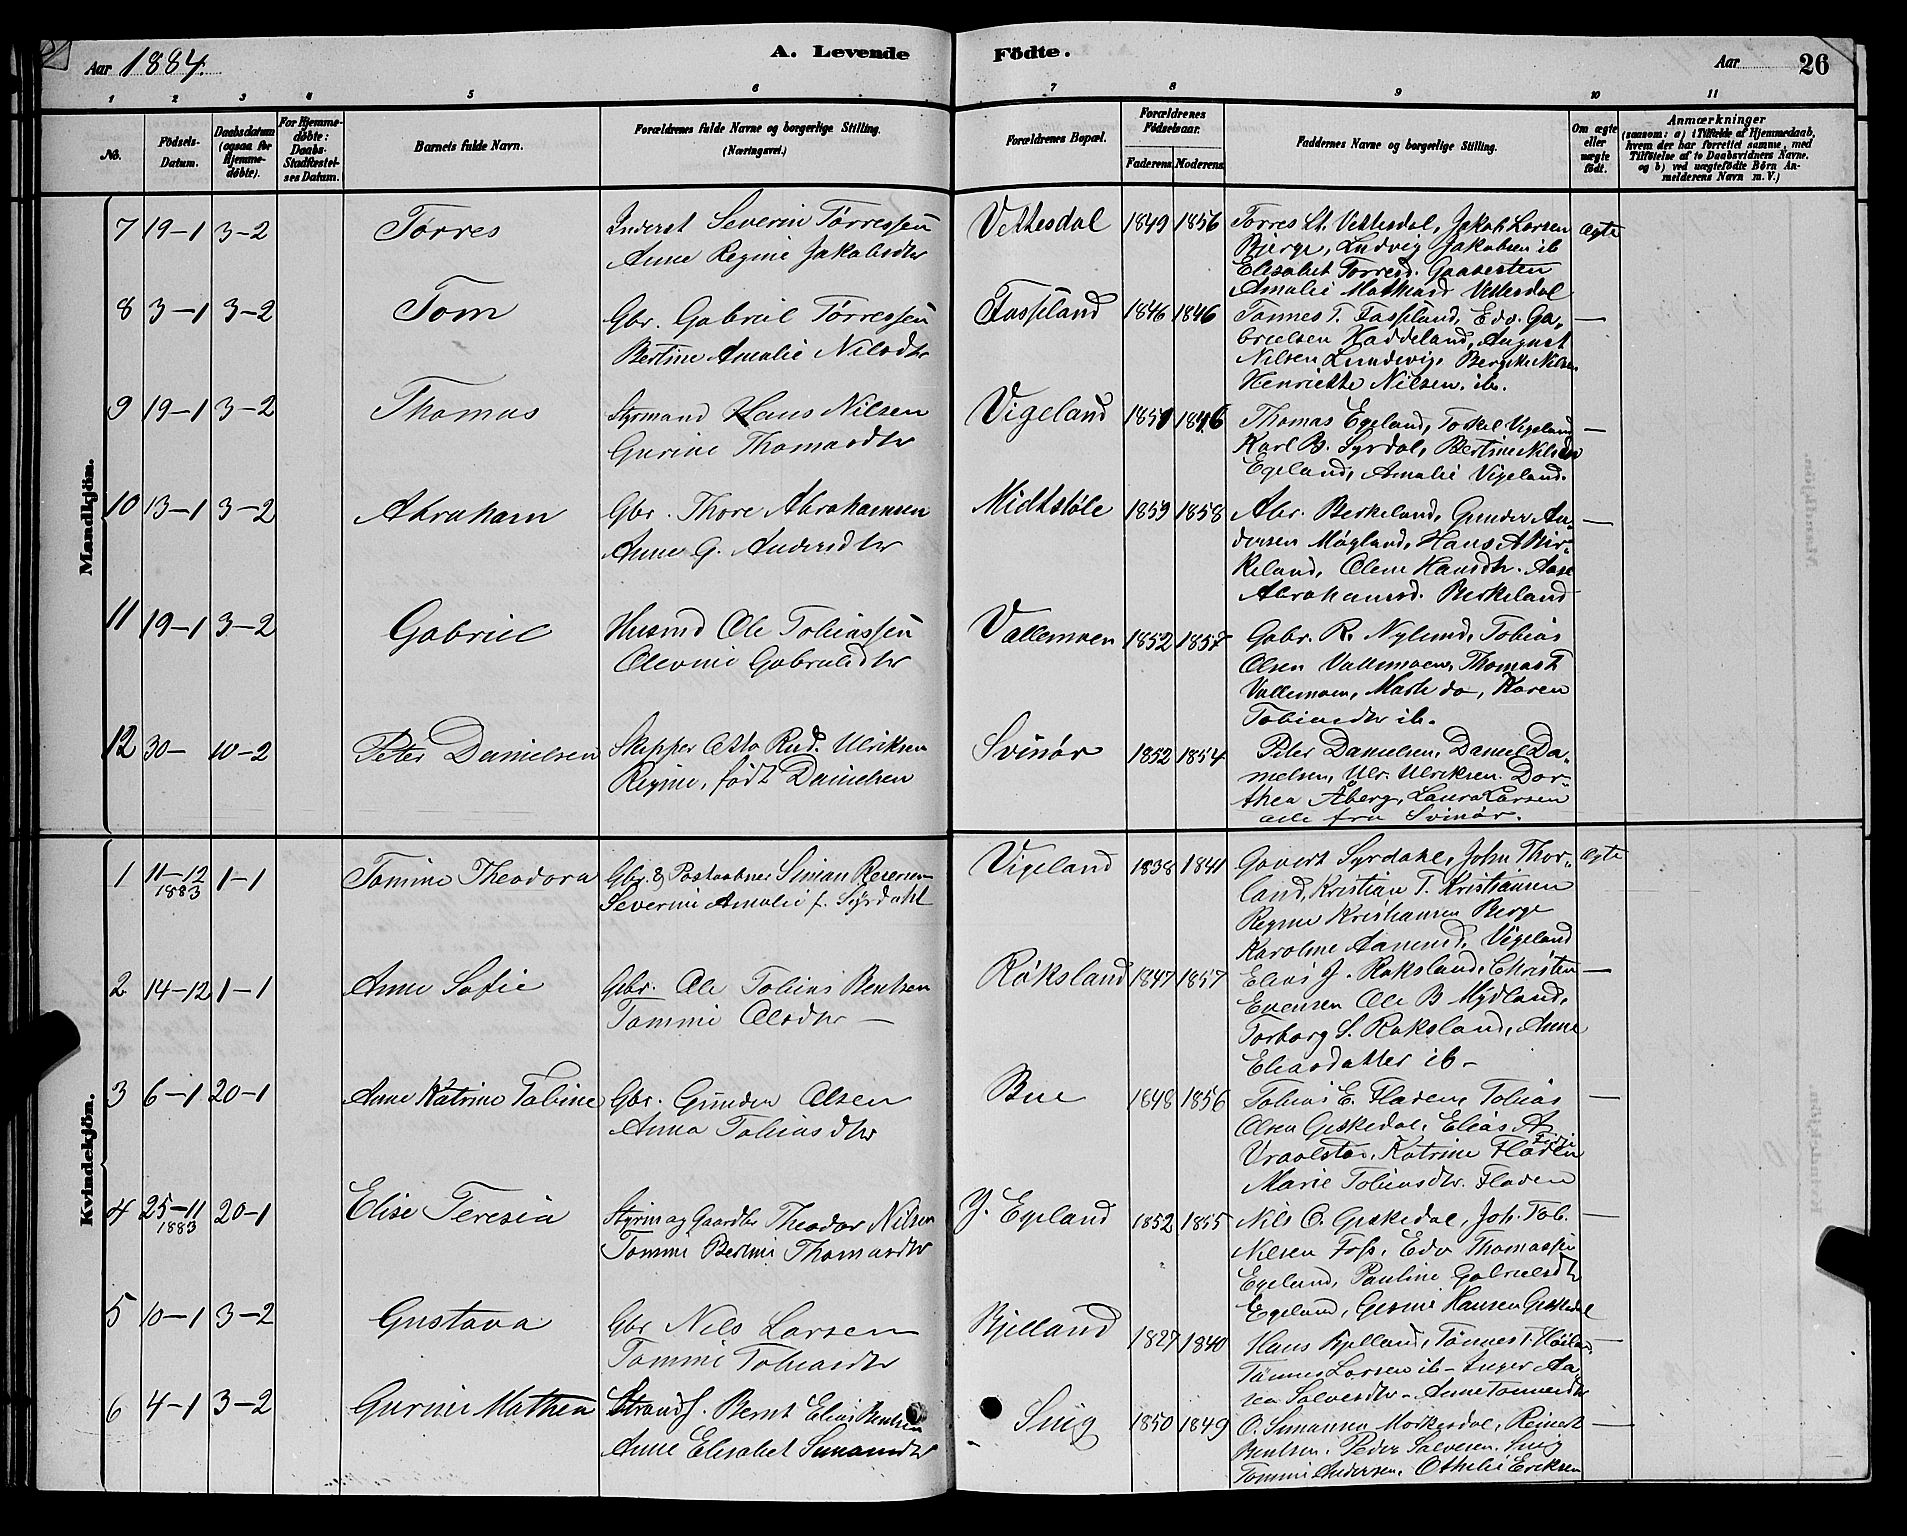 Aar 1884.
A. Levende Födte.
Aar 26
1 2 3 4 5 6 7 8 9 10 11
No.
Födsels-Datum.
Daabsdatum (ogsaa for Hjemme-döbte).
For Hjemme-döbte: Daabs-Stadfæstel-ses Datum.
Barnets fulde Navn.
Forældrenes fulde Navne og borgerlige Stilling.
(Næringsvei.)
Forældrenes Bopæl.
Forældrenes Födselsaar.
Faderens. Moderens.
Faddernes Navne og borgerlige Stilling.
Om ægte eller uægte födt.
Anmærkninger
(saasom: a) i Tilfælde af Hjemmedaab, hvem der har forrettet samme, med Tilföielse af to Daabsvidners Navne. og b) ved uægtefödte Börn An-melderens Navn m. V.)
Mandkjön.
7 19-1 3-2 Torres
Inderst Severin Tørressen
Anne Regine Jakobsdtr
Vettesdal 1849 1856
Torres St. Vettesdal, Jakob Larsen
Bjerge, Ludvig Jakobsen ib
Elisabet Torresd. Gaasesten
Amalie Mathiasd Vettesdal
ægte
8 3-1 3-2 Tom
Gbr. Gabriel Tørressen
Bertine Amalie Nilsdtr
Fasseland 1846 1846
Tønnes T. Fasseland, Edv. Ga,
brielsen Haddeland, August
Nilsen Lundevig, Nilsen
Henriette Nilsen, ib.
—
9 19-1 3-2 Thomas
Styrmand Hans Nilsen
Gurine Thomasdtr
Vigeland 1851 1846
Thomas Egeland, Tokel Vigeland
Karl B. Syrdal, Bertine Nilsdtr
Egeland, Amalie Vigeland.
—
10 13-1 3-2 Abraham
Gbr. Thore Abrahamsen
Anne G. Andersdtr
Midtstøle 1859 1858
Abr. Berkeland, Gunder An,
dersen Møgland, Hans A Bir-
keland, Olene Hansdtr. Aase
Abrahamsd. Berkeland
—
11 19-1 3-2 Gabriel
Husmd Ole Tobiassen
Olevine Gabrielsdtr
Vallemoen 1852 1857
Gabr. R. Nylund, Tobias
Olsen Vallemoen, Thomas T
Vallemoen, do, Karen
Tobiasdtr ib.
12 30- 10-2 Peter Danielsen
Skipper Otto Rud. Ulriksen
Regine, født Danielsen
Svinør 1852 1854
Peter Danielsen, Daniel Da,
nielsen, Ulr. Ulriksen. Dor-
thea Åberg, Laura Larsen
alle fra Svinør.
Kvindekjön.
1 11-12 1883 1-1 Tomine Theodora
Gbr. & Postaabner Siman Reiersen
Severine Amalie f. Syrdahl
Vigeland 1838 1841
Govert Syrdahl, John Thor,
land, Kristian T. Kristiansen
Regine Kristiansen Berge
Karoline Aanensd, Vigeland
ægte
2 14-12 1-1 Anne Sofie
Gbr. Ole Tobias Bentsen
Tomine Olsdtr —
Røksland 1847 1857
Elias J. Røksland, Christen
Evensen Ole B Mydland,
Torborg S. Røksland, Anne
Eliasdatter ib-
—
3 6-1 20-1 Anne Katrine Tobine
Gbr. Gunder Olsen
Anna Tobiasdtr
Bue 1848 1856
Tobias E. Fladen, Tobias
Olsen Geskedal, Elias A
Vraalstad, Katrine Fladen
Marie Tobiasdtr. Fladen
—
4 25-11 1883 20-1 Elise Teresia
Styrm og Gaardbr Theodor Nilsen
Tomine Bertine Thomasdtr
Y. Egeland 1852 1855
Nils O. Geskedal, Joh. Tob.
Nilsen Foss, Edv Thomassen
Egeland, Pauline Gabrielsdtr
Egeland, Gesine Hansen Geskedal
—
5 10-1 3-2 Gustava
Gbr Nils Larsen
Tomine Tobiasdtr
Kjelland 1827 1840
Hans Kjelland, Tønnes T.
Tønnes Larsen ib- Inger Aa,
Salvesdtr - Anne Tønnesdtr
—
6 4-1 3-2 Gurine Mathea
Strands. Bernt Elias Bentsen
Anne Elisabet Simansdtr
Snig 1850 1849
O. Simansen Moskedal, Reinert
Bentsen. Peder Salvesen. Snig
Tomine Andersen, Othelie Eriksen
—